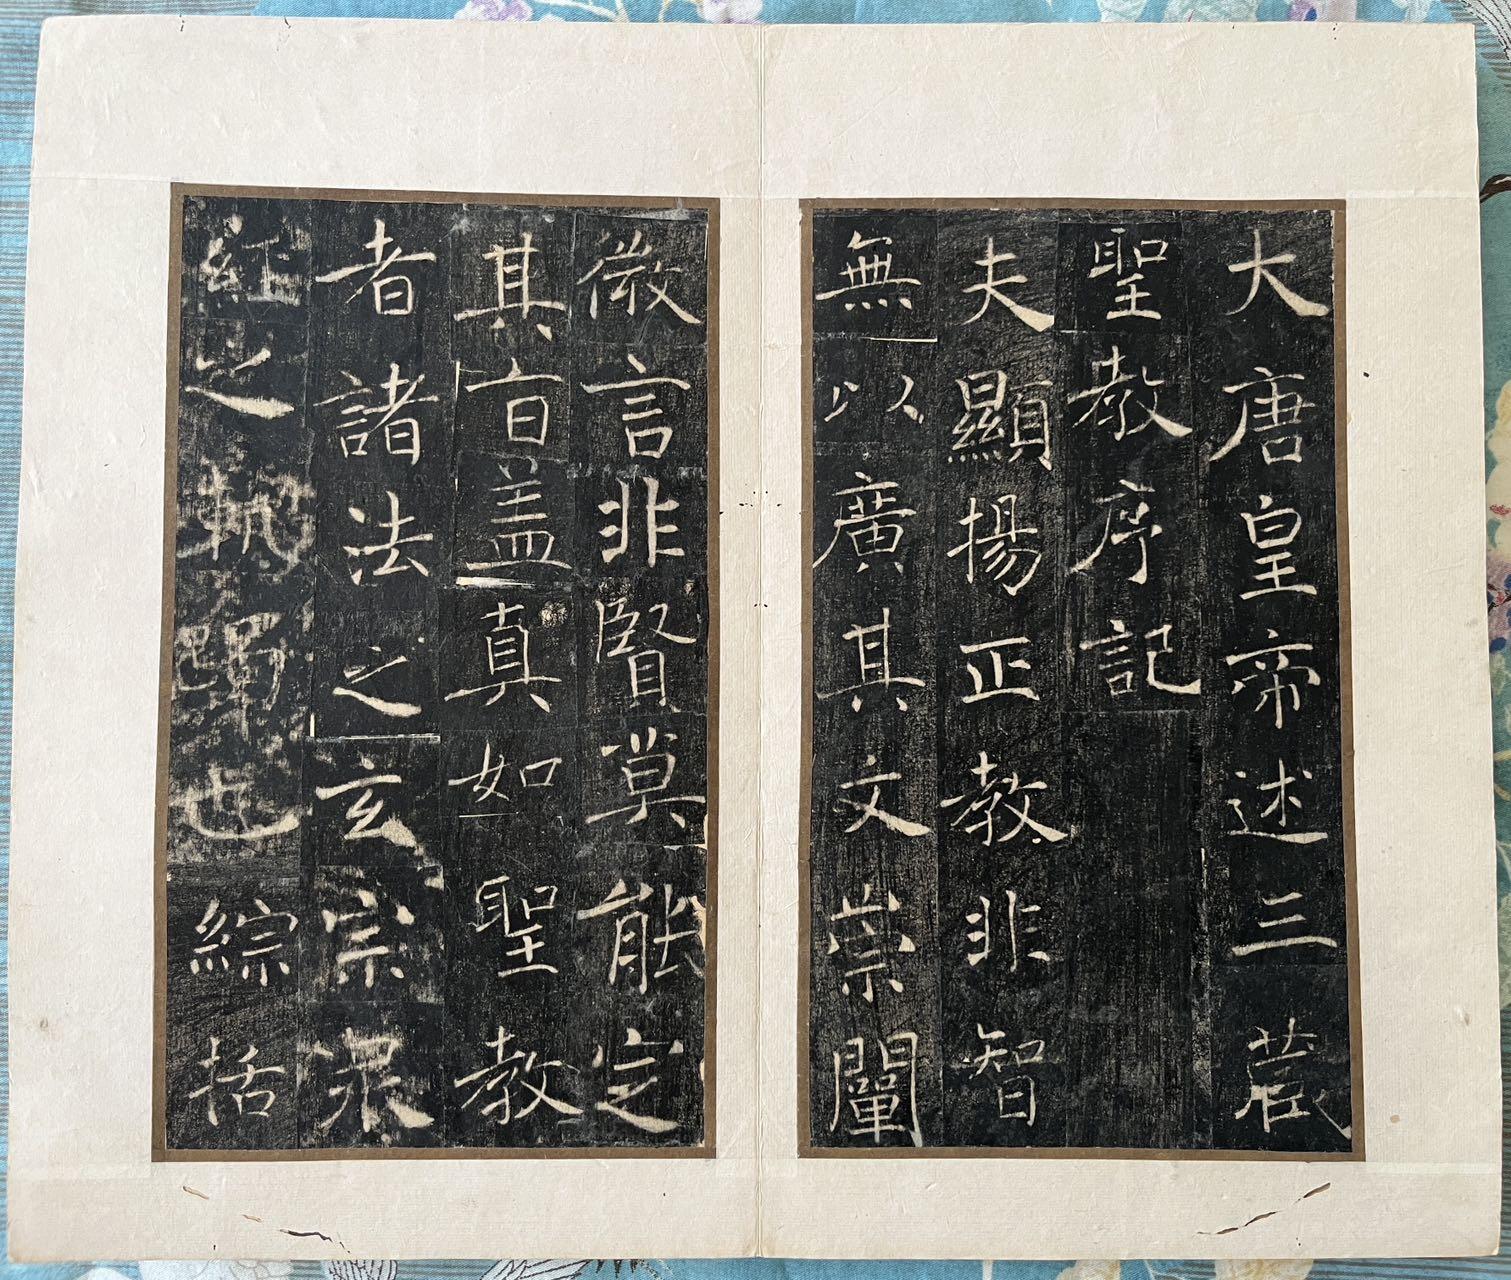 大唐皇帝述三藏
聖教序記
夫顯揚正教非智
無以廣其文崇闡
微言非賢莫能定
其旨盖真如聖教
者諸法之玄宗衆
經之軌躅也綜括